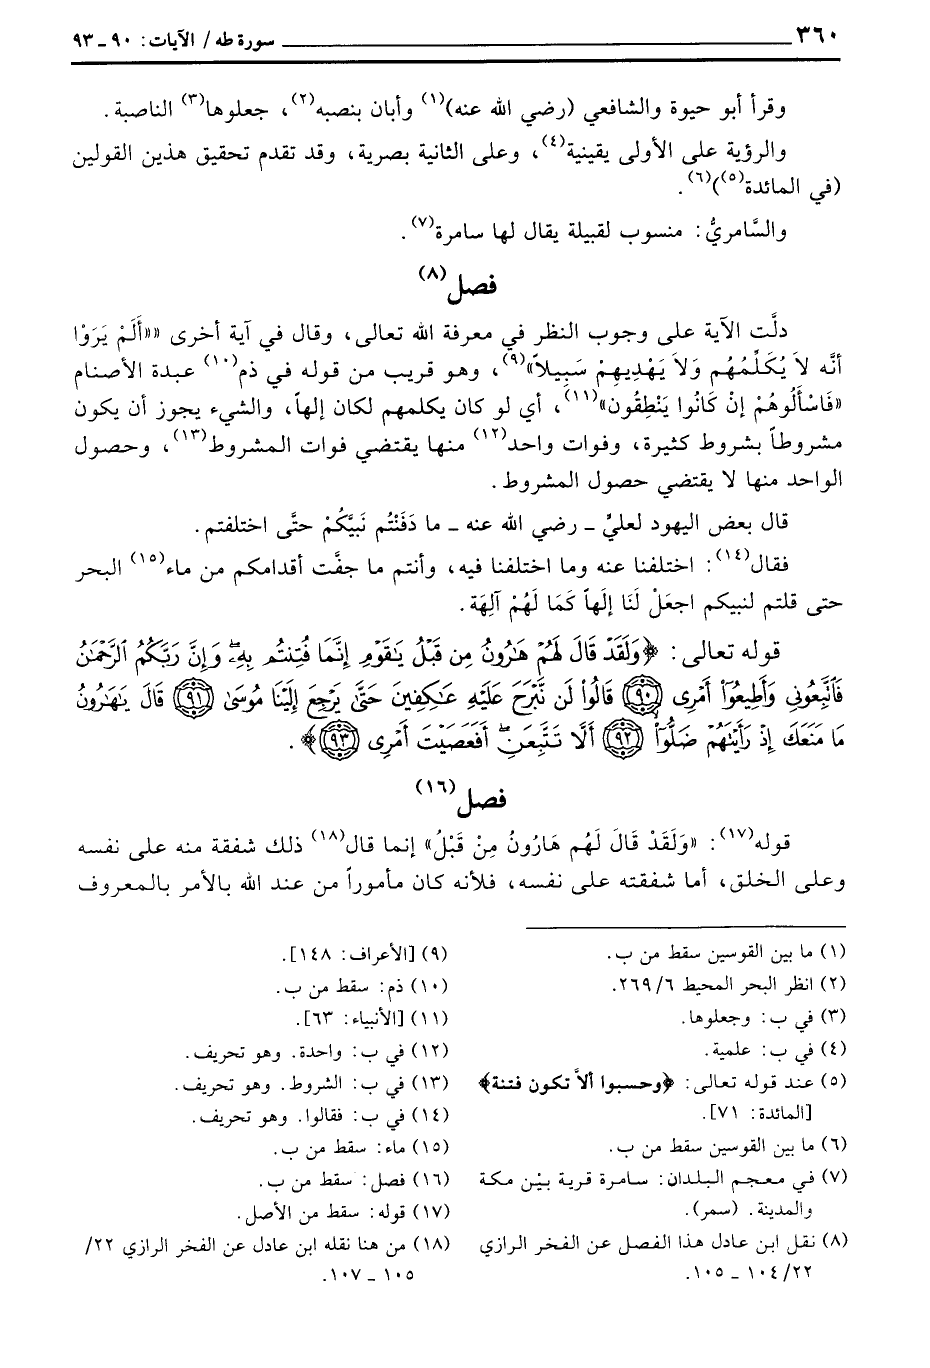 ٣٦٠ ــــــــــــــــــــــــــــــــــــــــــــــــــــــــــــــــ سورة طه / الآيات: ٩٠ ـ ٩٣
وقرأ أبو حيوة والشافعي (رضي الله عنه)(١) وأبان بنصبه(٢)، جعلوها(٣) الناصبة.
والرؤية على الأولى يقينية(٤)، وعلى الثانية بصرية، وقد تقدم تحقيق هذين القولين
(في المائدة(٥))(٦).
والسَّامريُّ: منسوب لقبيلة يقال لها سامرة(٧).
فصل(٨)
دلَّت الآية على وجوب النظر في معرفة الله تعالى، وقال في آية أخرى ««أَلَمْ يَرَوْا
أنَّه لاَ يُكَلِّمُهُم وَلاَ يَهْدِيهِمْ سَبِيلاً»(٩)، وهو قريب من قوله في ذم(١٠) عبدة الأصنام
«فَاسْأَلُوهُمْ إنْ كَانُوا يَنْطِقُون»(١١)، أي لو كان يكلمهم لكان إلهاً، والشيء يجوز أن يكون
مشروطاً بشروط كثيرة، وفوات واحد(١٢) منها يقتضي فوات المشروط(١٣)، وحصول
الواحد منها لا يقتضي حصول المشروط.
قال بعض اليهود لعليٍّ ـ رضي الله عنه ـ ما دَفَنْتُم نَبيَّكُمْ حتَّى اختلفتم.
فقال(١٤): اختلفنا عنه وما اختلفنا فيه، وأنتم ما جفَّت أقدامكم من ماء(١٥) البحر
حتى قلتم لنبيكم اجعَلْ لَنَا إلَهاً كَمَا لَهُمْ آلِهَة.
قوله تعالى: ﴿وَلَقَدْ قَالَ لَهُمْ هَٰرُونُ مِن قَبْلُ يَٰقَوْمِ إِنَّمَا فُتِنتُم بِهِۦۖ وَإِنَّ رَبَّكُمُ ٱلرَّحْمَٰنُ
فَٱتَّبِعُونِى وَأَطِيعُوٓا۟ أَمْرِى ﴿٩٠﴾ قَالُوا۟ لَن نَّبْرَحَ عَلَيْهِ عَٰكِفِينَ حَتَّىٰ يَرْجِعَ إِلَيْنَا مُوسَىٰ ﴿٩١﴾ قَالَ يَٰهَٰرُونُ
مَا مَنَعَكَ إِذْ رَأَيْتَهُمْ ضَلُّوٓا۟ ﴿٩٢﴾ أَلَّا تَتَّبِعَنِۖ أَفَعَصَيْتَ أَمْرِى ﴿٩٣﴾﴾.
فصل(١٦)
قوله(١٧): «وَلَقَدْ قَالَ لَهُم هَارُونُ مِنْ قَبْلُ» إنما قال(١٨) ذلك شفقة منه على نفسه
وعلى الخلق، أما شفقته على نفسه، فلأنه كان مأموراً من عند الله بالأمر بالمعروف
(١) ما بين القوسين سقط من ب.
(٢) انظر البحر المحيط ٦/٢٦٩.
(٣) في ب: وجعلوها.
(٤) في ب: علمية.
(٥) عند قوله تعالى: ﴿وحسبوا ألاَّ تكون فتنة﴾
[المائدة: ٧١].
(٦) ما بين القوسين سقط من ب.
(٧) في معجم البلدان: سامرة قرية بيْن مكة
والمدينة. (سمر).
(٨) نقل ابن عادل هذا الفصل عن الفخر الرازي
٢٢/١٠٤ ـ ١٠٥.
(٩) [الأعراف: ١٤٨].
(١٠) ذم: سقط من ب.
(١١) [الأنبياء: ٦٣].
(١٢) في ب: واحدة. وهو تحريف.
(١٣) في ب: الشروط. وهو تحريف.
(١٤) في ب: فقالوا. وهو تحريف.
(١٥) ماء: سقط من ب.
(١٦) فصل: سقط من ب.
(١٧) قوله: سقط من الأصل.
(١٨) من هنا نقله ابن عادل عن الفخر الرازي ٢٢/
١٠٥ ـ ١٠٧.